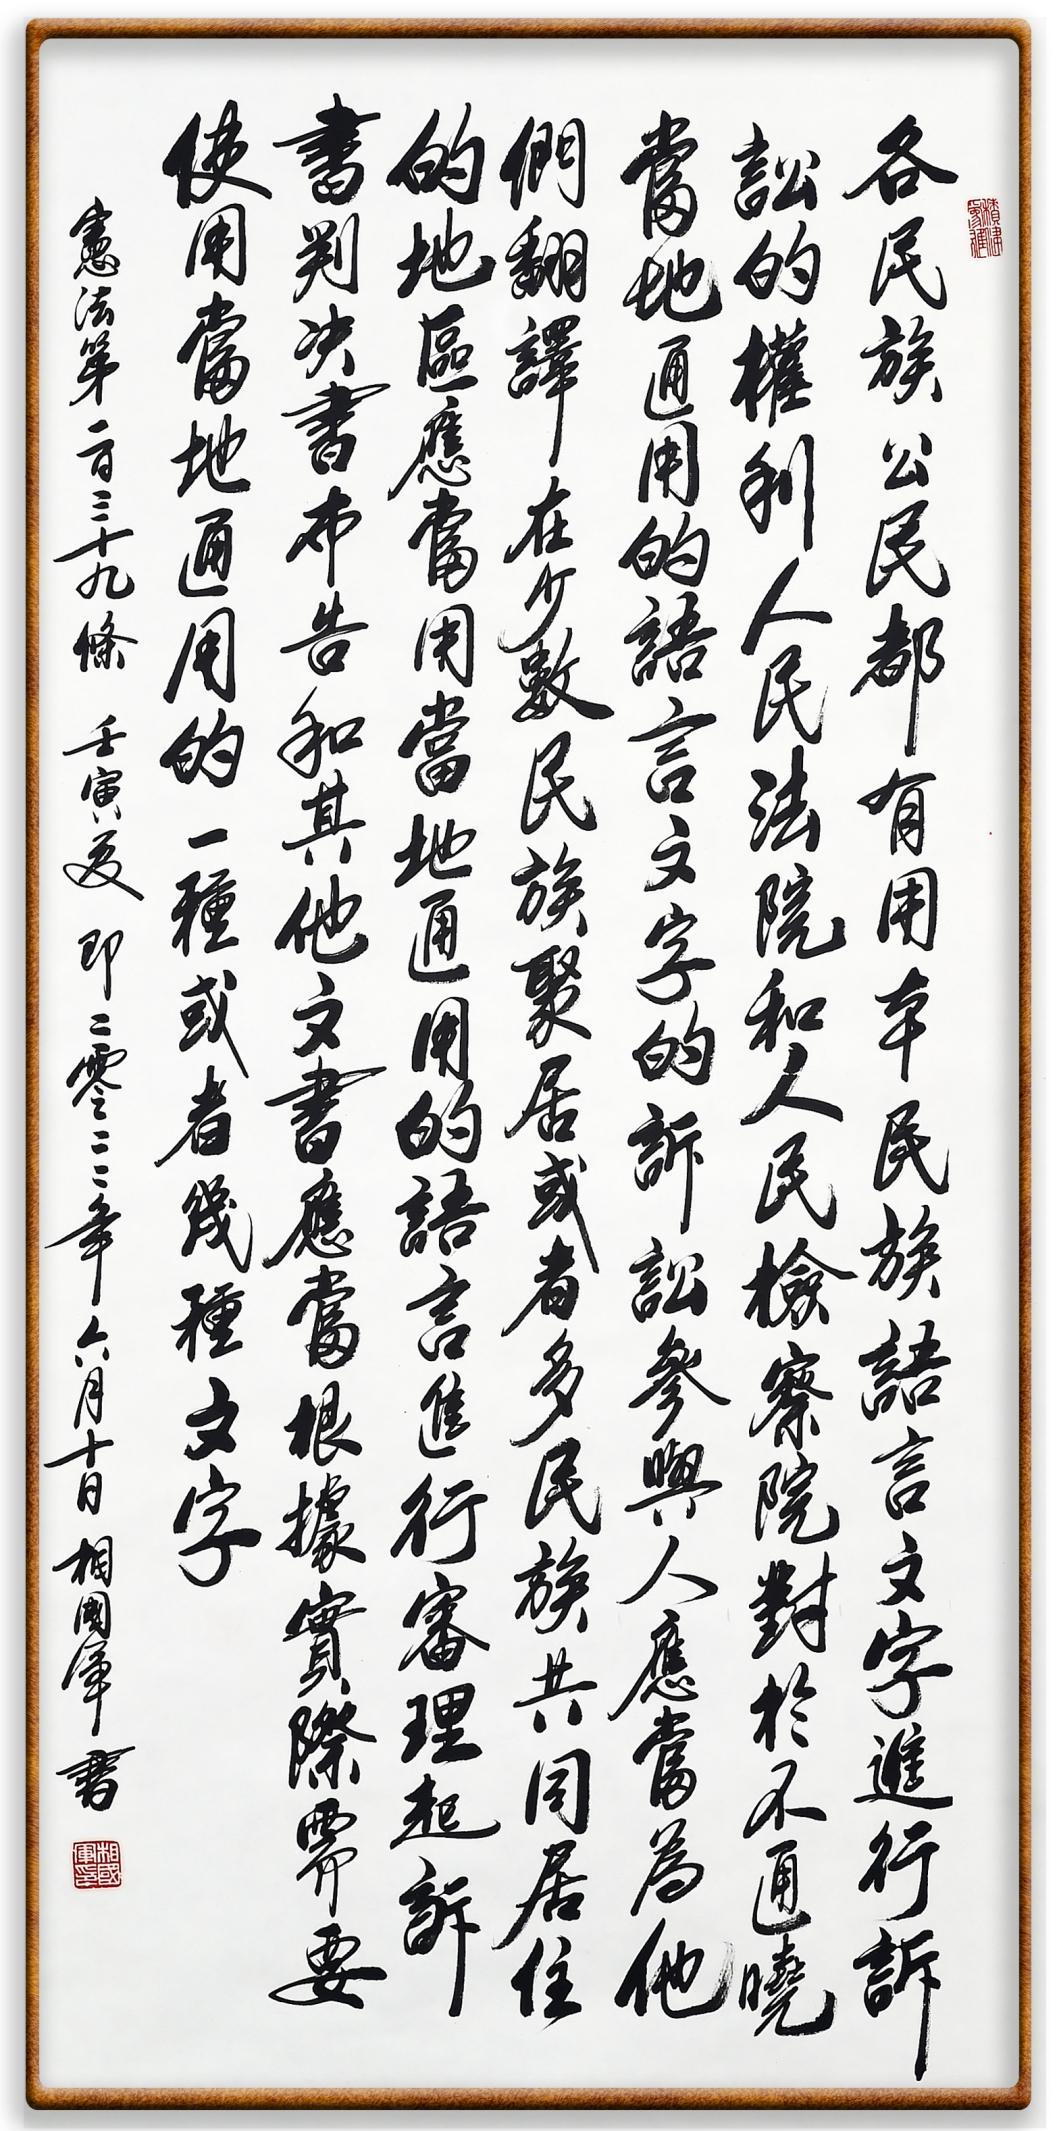 積健為雄
各民族公民都有用本民族語言文字進行訴
訟的權利人民法院和人民檢察院對於不通曉
當地通用的語言文字的訴訟參與人應當為他
們翻譯在少數民族聚居或者多民族共同居住
的地區應當用當地通用的語言進行審理起訴
書判决書布告和其他文書應當根據實際需要
使用當地通用的一種或者幾種文字
憲法第一百三十九條 壬寅夏 即二零二二年六月十日 相國軍書
相國軍印